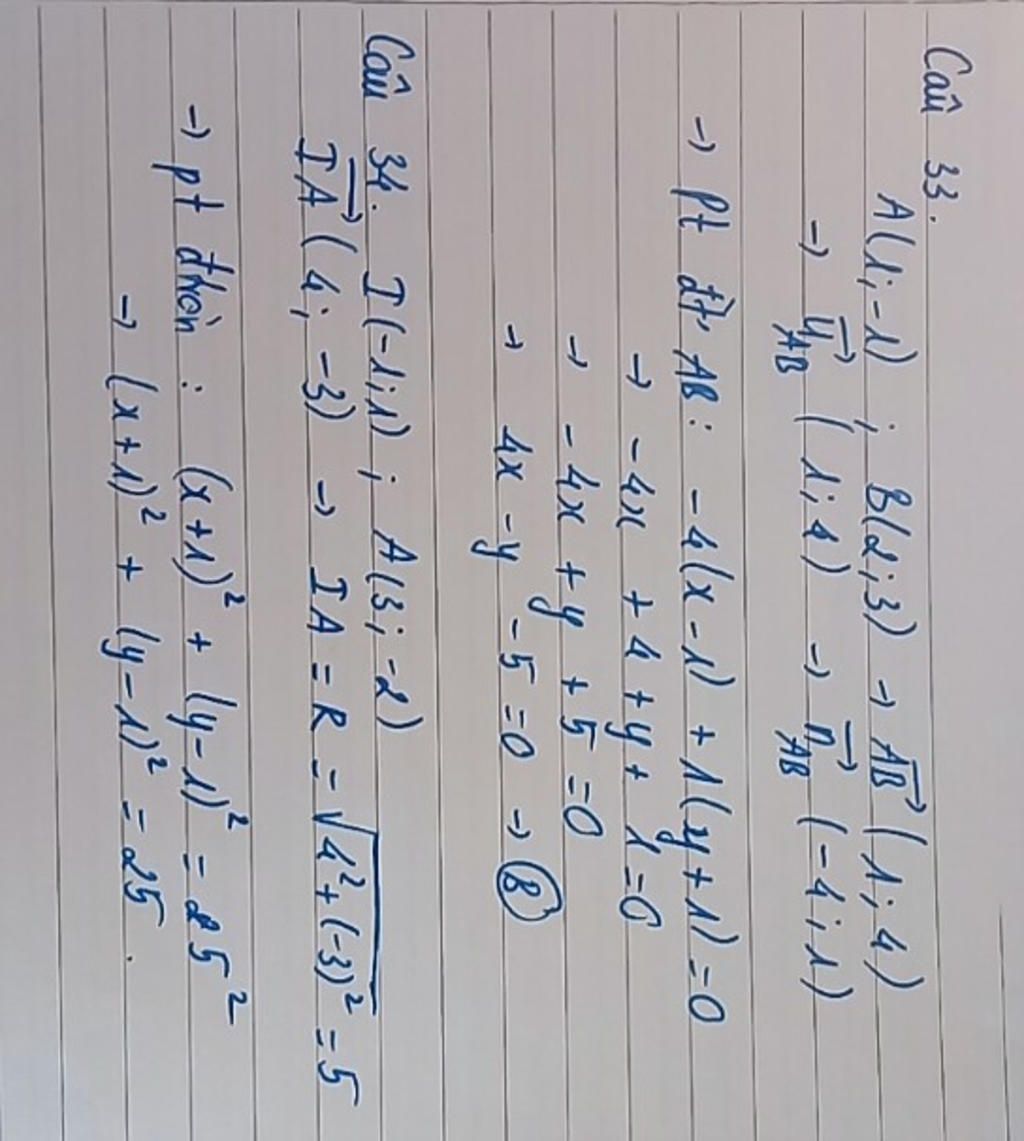 Câu 33.
A(1;-1) ; B(2;3) → \overrightarrow{AB} (1;4)
→ \overrightarrow{u}_{AB} (1;4) → \overrightarrow{n}_{AB} (-4;1)
→ Pt đt AB: -4(x-1) + 1(y+1) = 0
→ -4x + 4 + y + 1 = 0
→ -4x + y + 5 = 0
→ 4x - y - 5 = 0 → B
Câu 34. I(-1;1) ; A(3;-2)
\overrightarrow{IA} (4;-3) → IA = R = √(4² + (-3)²) = 5
→ pt đtròn : (x+1)² + (y-1)² = 5²
→ (x+1)² + (y-1)² = 25.